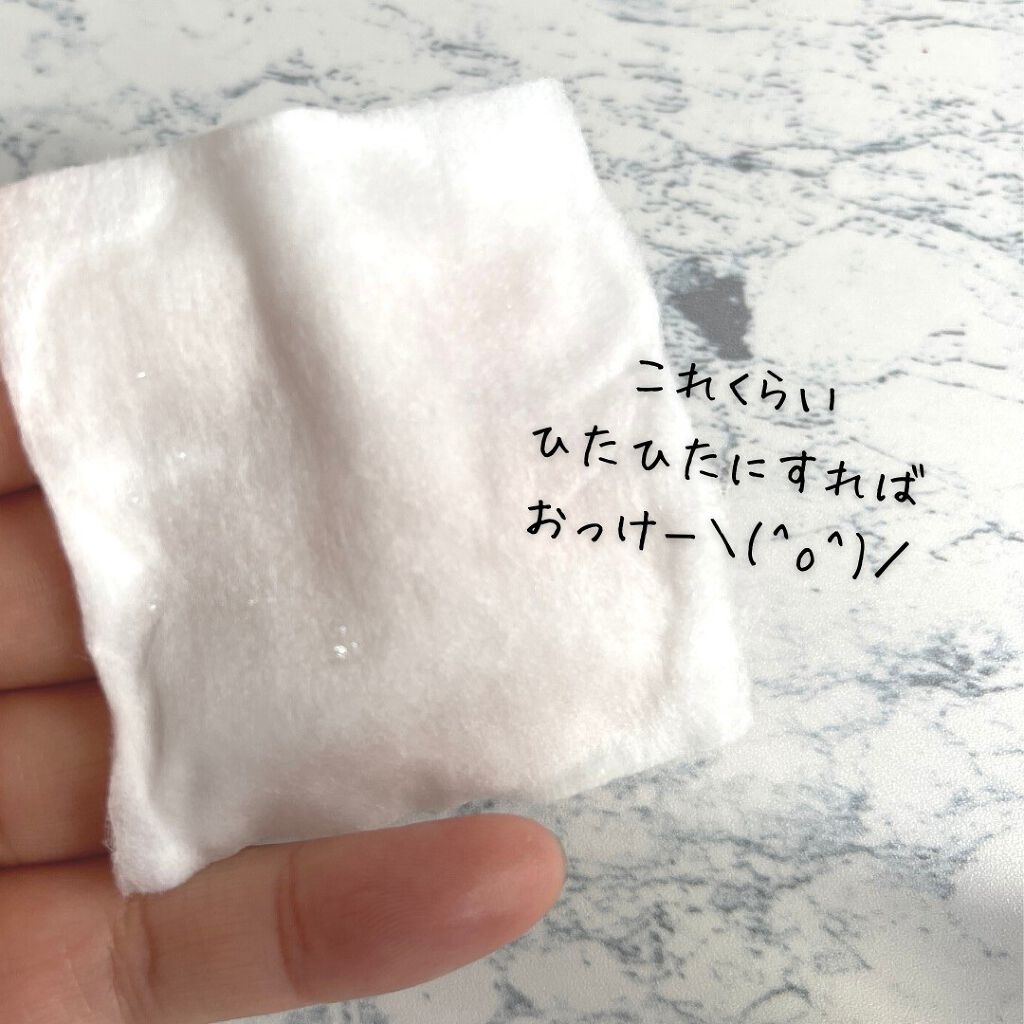 これくらい
ひたひたにすれば
おっけー＼(^o^)／